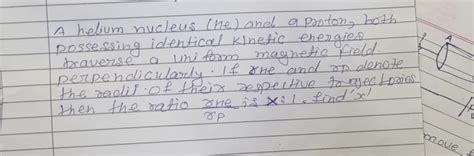 A helium nucleus (He) and a proton, both
possessing identical kinetic energies
traverse a uniform magnetic field
perpendicularly. If rHe and rp denote
the radii of their respective trajectories
then the ratio rHe/rp is x:1. find 'x'
move